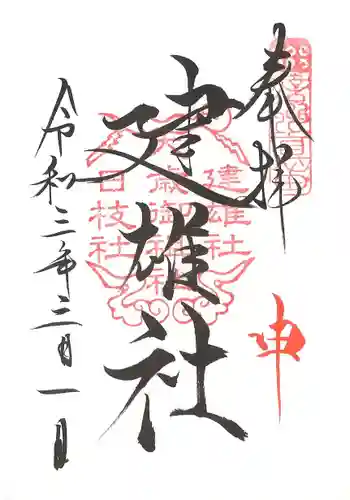 奉拝
申
建雄社
建雄社
日枝社
令和三年三月一日